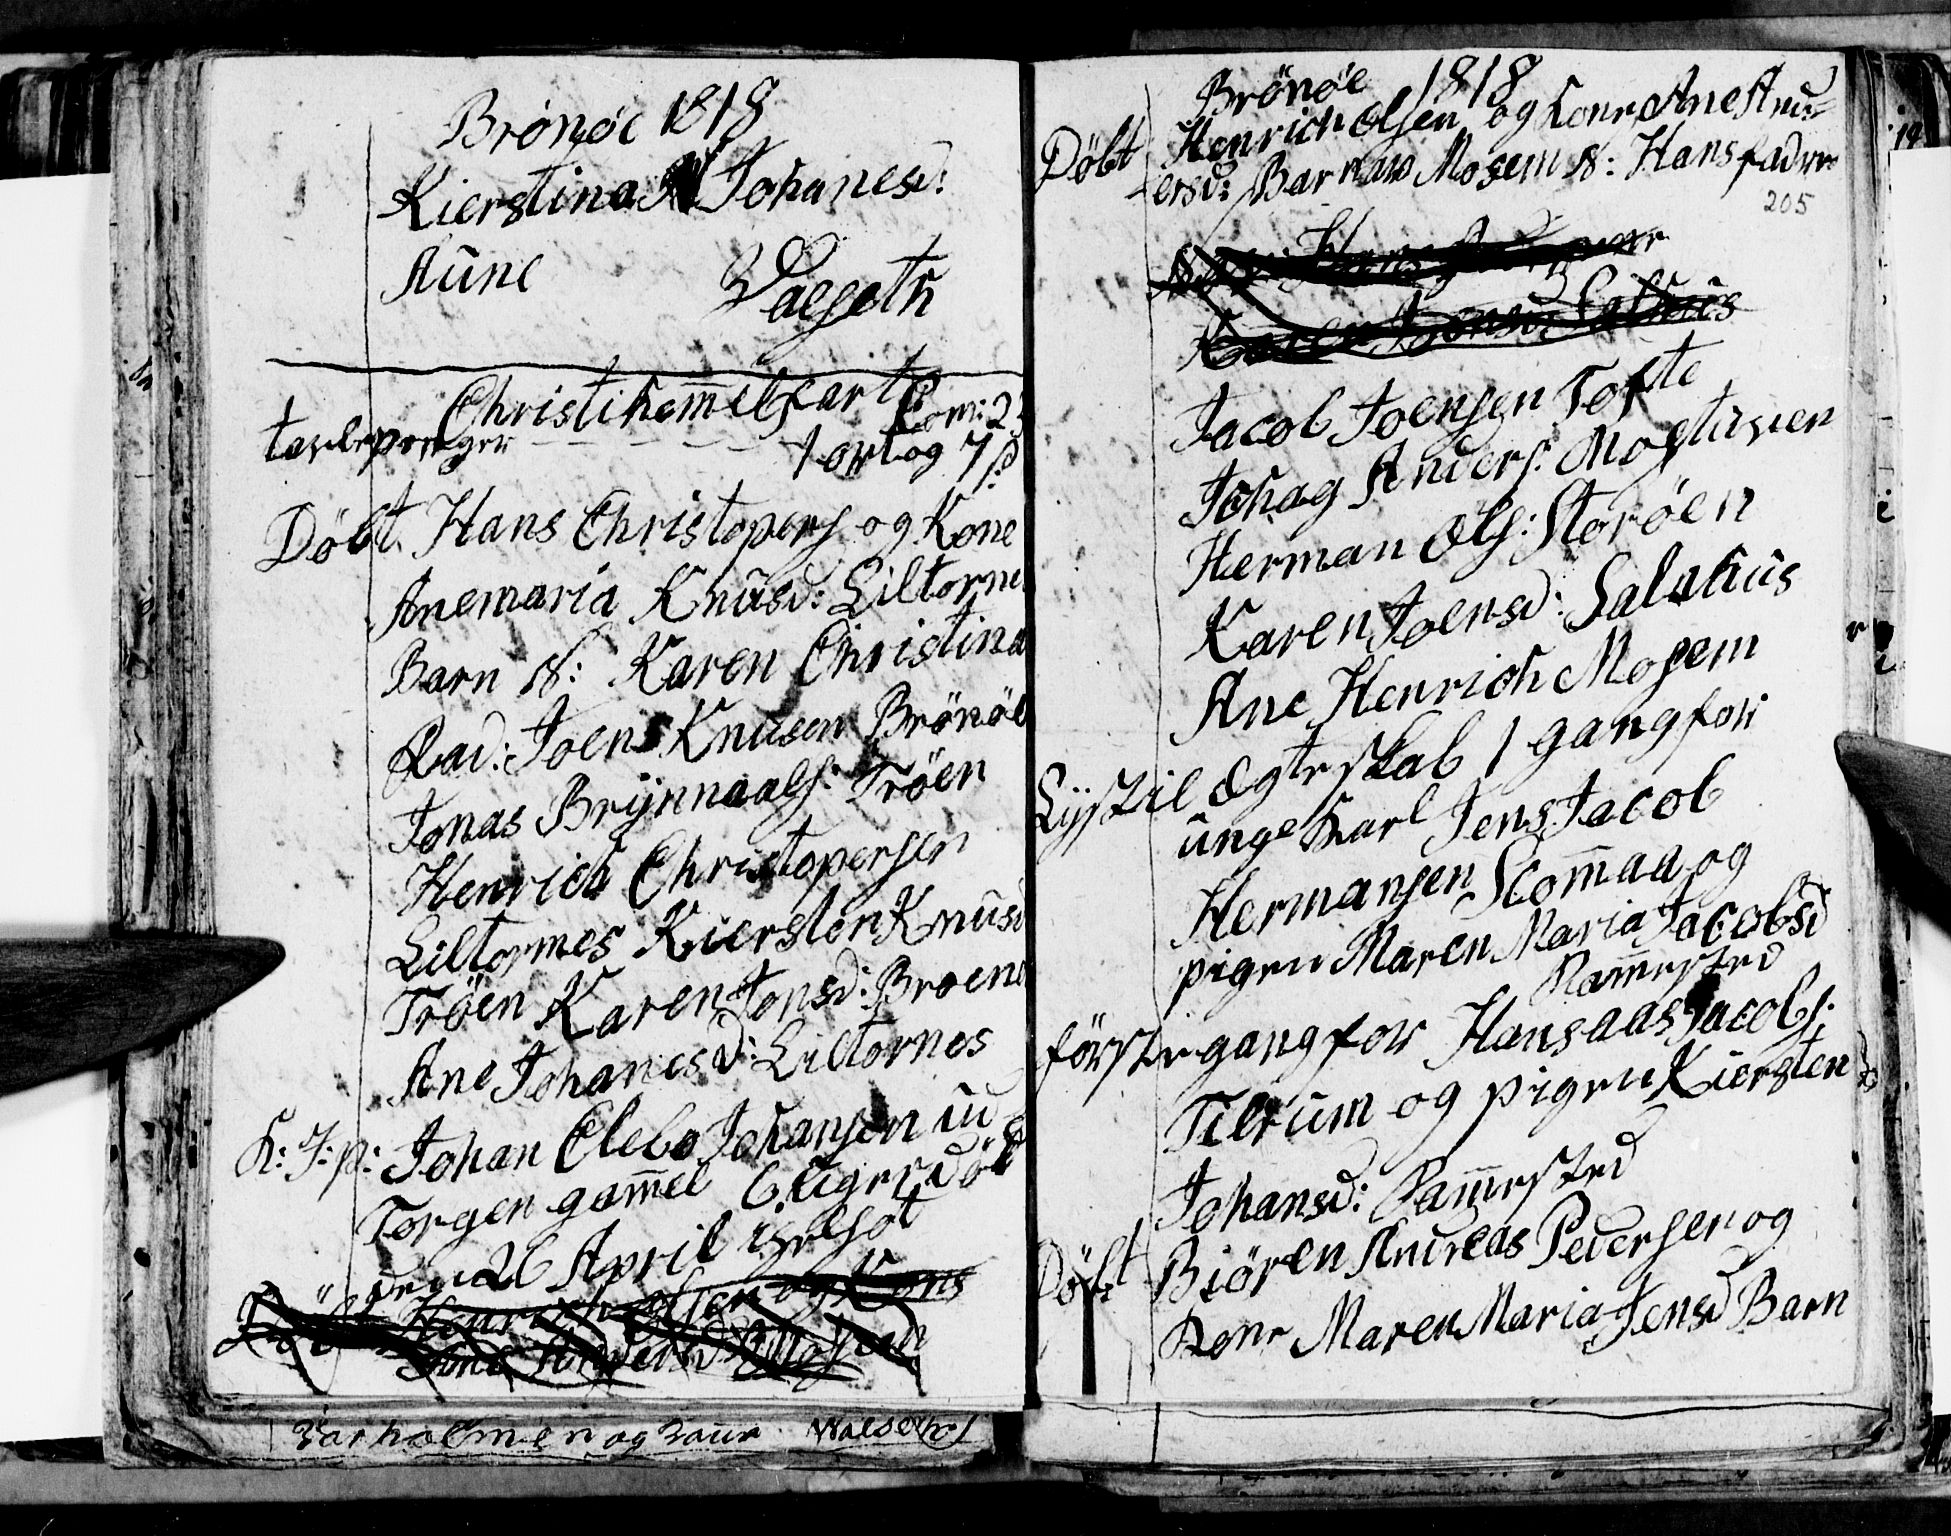 Brönöe 1818
Kierstina Johanesd:
Aune Valseth
Christihem̅elfart Com: 2
tavlepenger 1 ort og 7 s
Döbt. Hans Christopers og Kone
Anemaria Knüsd: Liltorne
Barn N: Karen Christina
Fad: Joens Knusen Brönöe
Jonas Brÿnnaals: Tröen
Henrich Christopersen
Liltornes Kiersten Knusd
Tröen Karen Jonsd: Broene
Ane Johanesd: Liltornes
K: J: p: Johan Elebo Johansen ud
Torgen gam̅el 6 uger döb
den 26 April
Henrich Olsen og Kone
Anders
holmen og
Brönöe 1818
Döbt Henrich Olsen og Kone Ane And=
ersd: Barnas Mosem N: Hans fadere
205
Jacob Joensen Tofte
Johag Anders: Moghaven
Herman Ols: Storöen
Karen Joensd: Salhus
Ane Henrich Mosem
Lÿst til Ægteskab 1 gang for
unge Karl Jens Jacob
Hermansen Som̅aa og
pigen Maren Maria Jacobsd
Ram̅ested
förste gang for Hans aas Jacobs:
Tilrum og pigen Kiersten
Johansd: Ram̅ested
Döbt Biören Andreas Pedersen og
Kone Maren Maria Jensd Barn